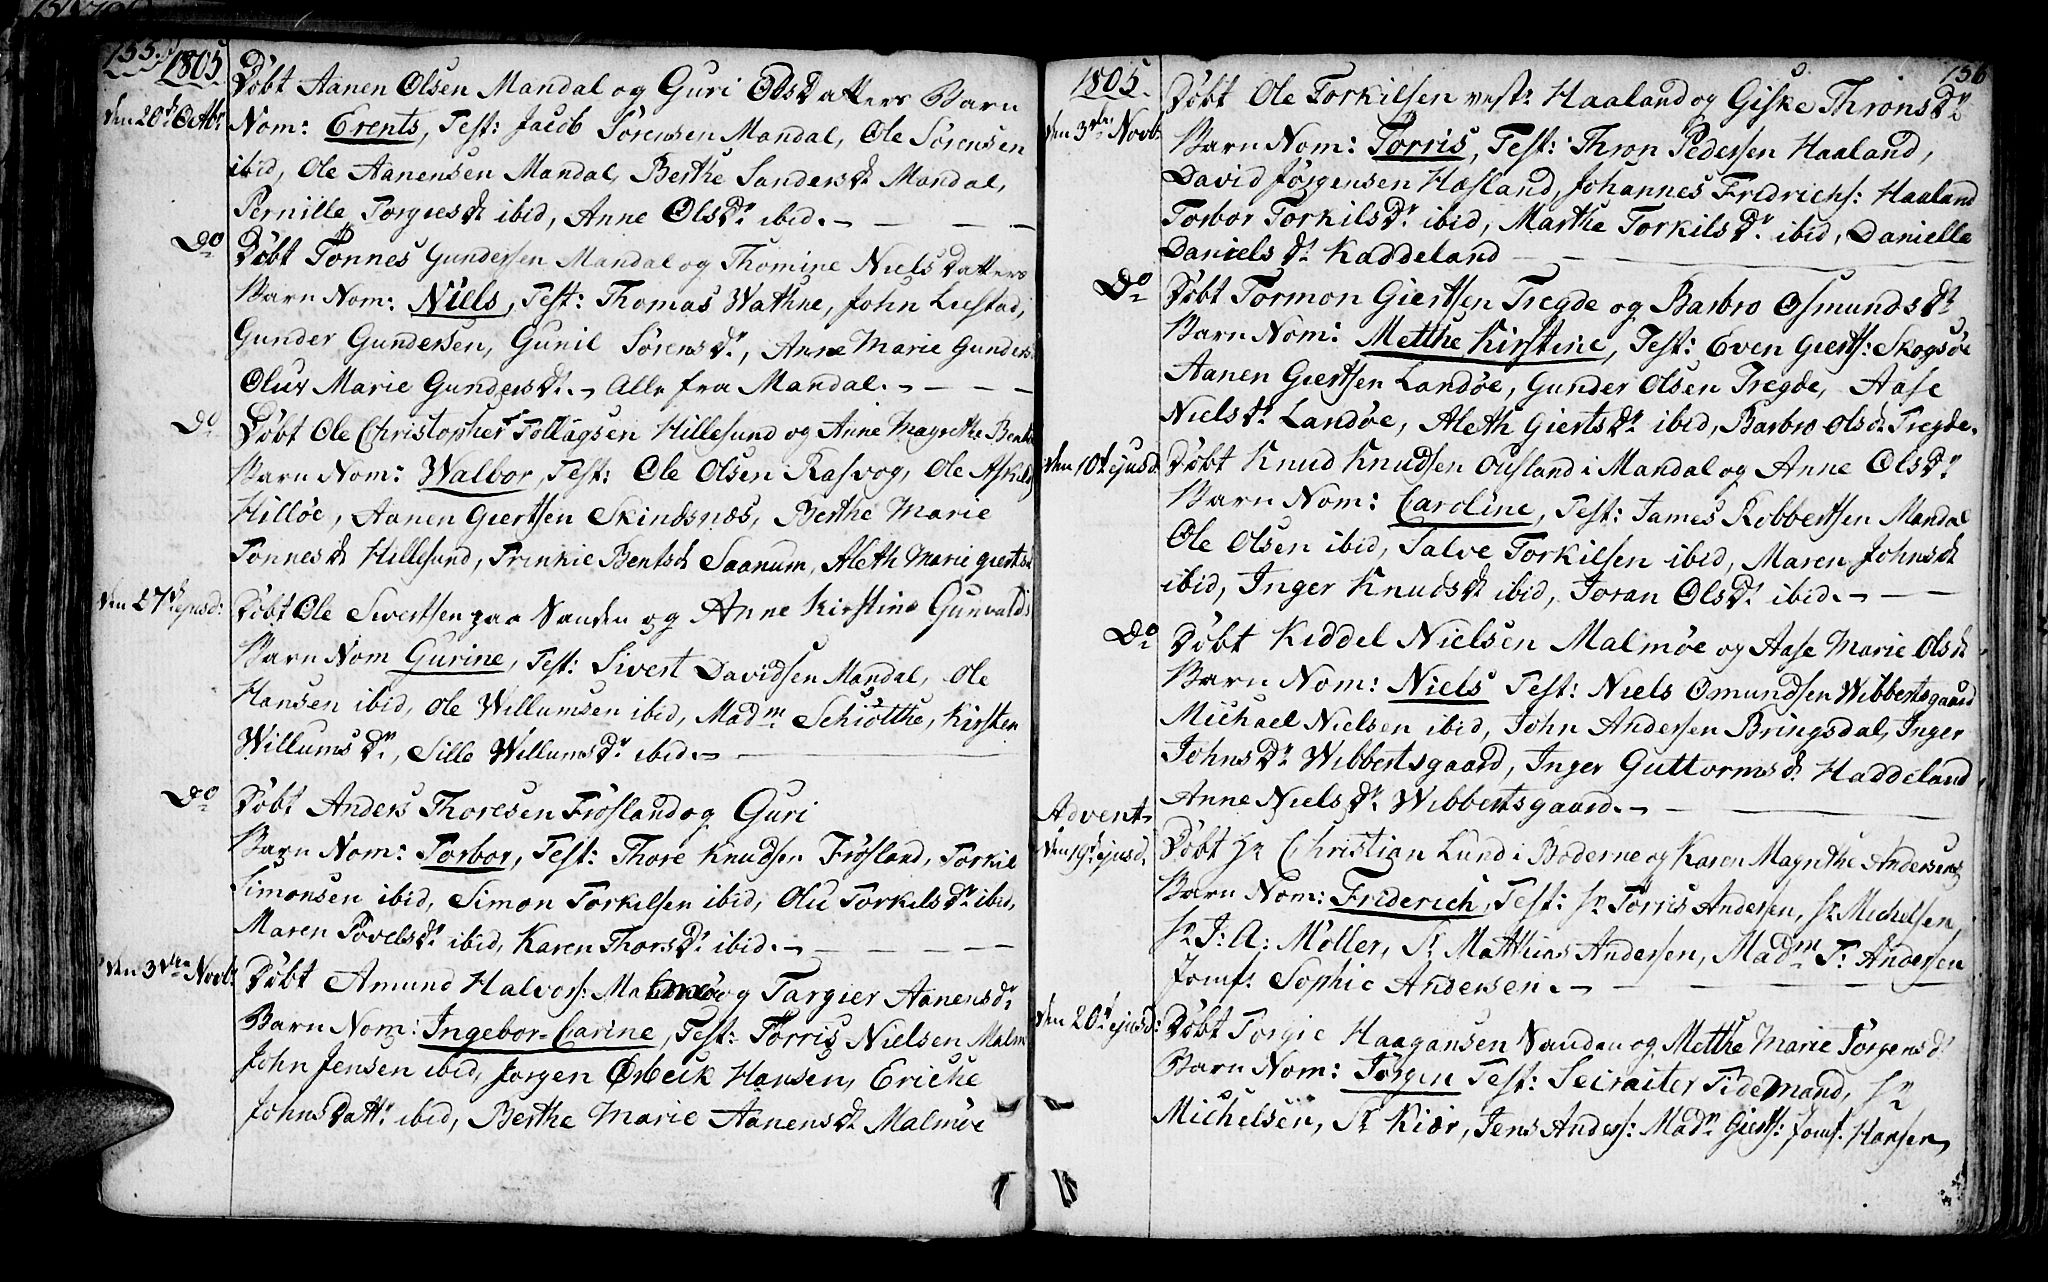 155. 1805
Døbt Aanen Olsen Mandal og Guri OdsDatters Barn
den 20de Octbr Nom: Erents, Test: Jacob Sørensen Mandal, Ole Sørensen
ibid, Ole Aanensen Mandal, Berthe Sandersdr Mandal,
Pernille Torgresdr ibid, Anne OlsDr ibid. —
Do Døbt Tønnes Gundersen Mandal og Thomine NielsDatters
Barn Nom: Niels, Test: Thomas Wathne, John Lustad,
Gunder Gundersen, Gunil SørensDr, Anne Marie Gunders
Oluv Marie GundersDr. — Alle fra Mandal. —
Do Døbt Ole Christopher Tollagsen Hillesund og Anne Magrethe Bents
Barn Nom: Walbor, Test: Ole Olsen Rasvog, Ole Askilds
Hilløe, Aanen Giertsen Skindsnæs, Berthe Marie
Tønnesdr Hillesund, Trinkie Bentsdr Saanum, Aleth Marie giertsd
den 27de ejusd: Døbt Ole Sivertsen paa Sanden og Anne Kirstine Gunvalds
Barn Nom Gurine, Test: Sivert Davidsen Mandal, Ole
Hansen ibid, Ole Willumsen ibid, Madm Schiøtthe, Kirsten
WillumsDr, Sille WillumsDr ibid. —
Do Døbt Anders Thoresen Frøsland og Guri
Barn Nom: Torbor, Test: Thore Knudsen Frøsland, Torkil
Simonsen ibid, Simon Torkilsen ibid, Olu TorkilsDr ibid,
Maren PovelsDr ibid, Karen ThorsDr ibid. —
den 3die Novbr Døbt Amund Halvors: Malmøe og Targier Aanensdr
Barn Nom: Ingebor-Carine, Test: Torris Nielsen Malm
John Jensen ibid, Jørgen Orbeck Hansen, Eriche
JohnsDattr ibid, Berthe Marie AanensDr Malmøe
1805. 156
Døbt Ole Torkilsen vestr Haaland og Giske ThronsDr
den 3die Novb: Barn Nom: Torris, Test: Thron Pedersen Haaland,
David Jørgensen Haaland, Johannes Fredrichs: Haaland
Torbor TorkilsDr ibid, Marthe TorkilsDr ibid, Danielle
Danielsdr Kaddeland —
Do Døbt Tormon Giertsen Tregde og Barbro OsmundsDr
Barn Nom: Metthe Kirstine, Test: Even Gierts: Skogsøe
Aanen Giertsen Landøe, Gunder Olsen Tregde, Aase
Nielsdr Landøe, Aleth Giertsdr ibid, Barbro Olsdr Tregde.
den 10de ejusd: Døbt Knud Knudsen Oufland i Mandal og Anne OlsDr
Barn Nom: Caroline, Test: James Robbertsen Mandal
Ole Olsen ibid, Salve Torkilsen ibid, Maren Johnsdr
ibid, Inger KnudsDr ibid, Joran OlsDr ibid. —
Do Døbt Kiddel Nielsen Malmøe og Aase Marie Olsdr
Barn Nom: Niels Test: Niels Omundsen Wibbertsgaard
Michael Nielsen ibid, John Andersen Bringsdal, Inger
JohnsDr Wibbertsgaard, Inger Guttormsdr Haddeland
Anne NielsDr Wibbertsgaard. —
Advent
den 19de ejusd. Døbt Hr Christian Lund i Boderne og Karen Magrethe Andersens
Barn Nom: Friderich, Test: Sr Torris Andersen, Sr Michelsen,
Sr J: A: Møller, Sr Matthias Andersen, Madm T: Andersen
Jomf: Sophie Andersen. —
den 20de ejusd: Døbt Torgie Haagansen Sanden og Metthe Marie Jørgensdr
Barn Nom: Jørgen Test: Secraiter Tidemand, Sr
Michelsen, Sr Kiør, Jens Anders: Madm Gierts: Jomf: Hansen,